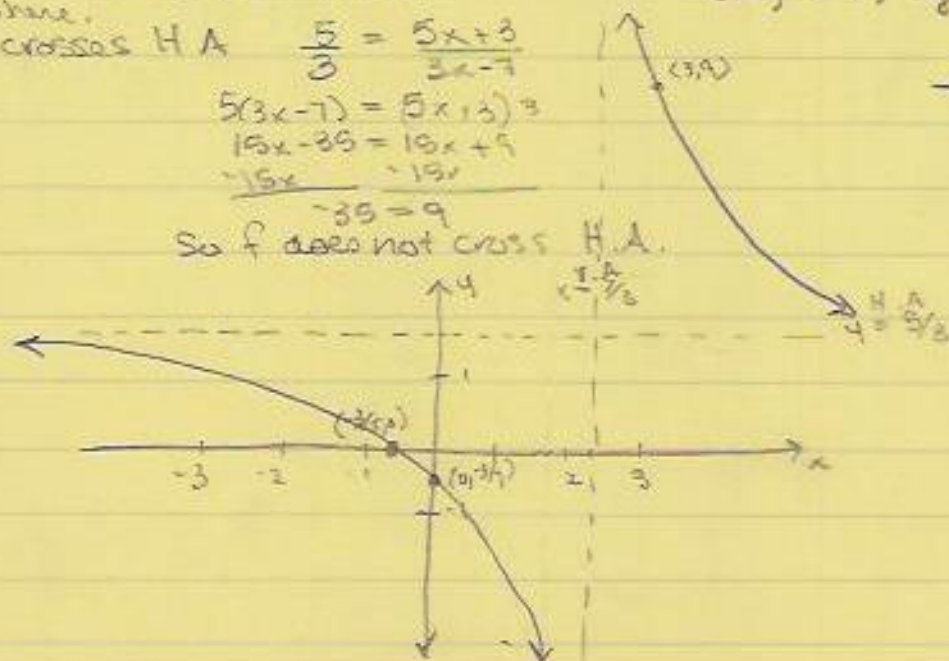 where.
crosses H A 5/3 = 5x+3/3x-7
5(3x-7) = (5x+3)3
15x-35 = 15x+9
-15x -15x
-35 = 9
So f does not cross H.A.
(3,9)
V.A
x = 7/3
H A
y = 5/3
y
1
(-3/5,0)
-3 -2 -1 2 3 x
(0,-3/7)
-1